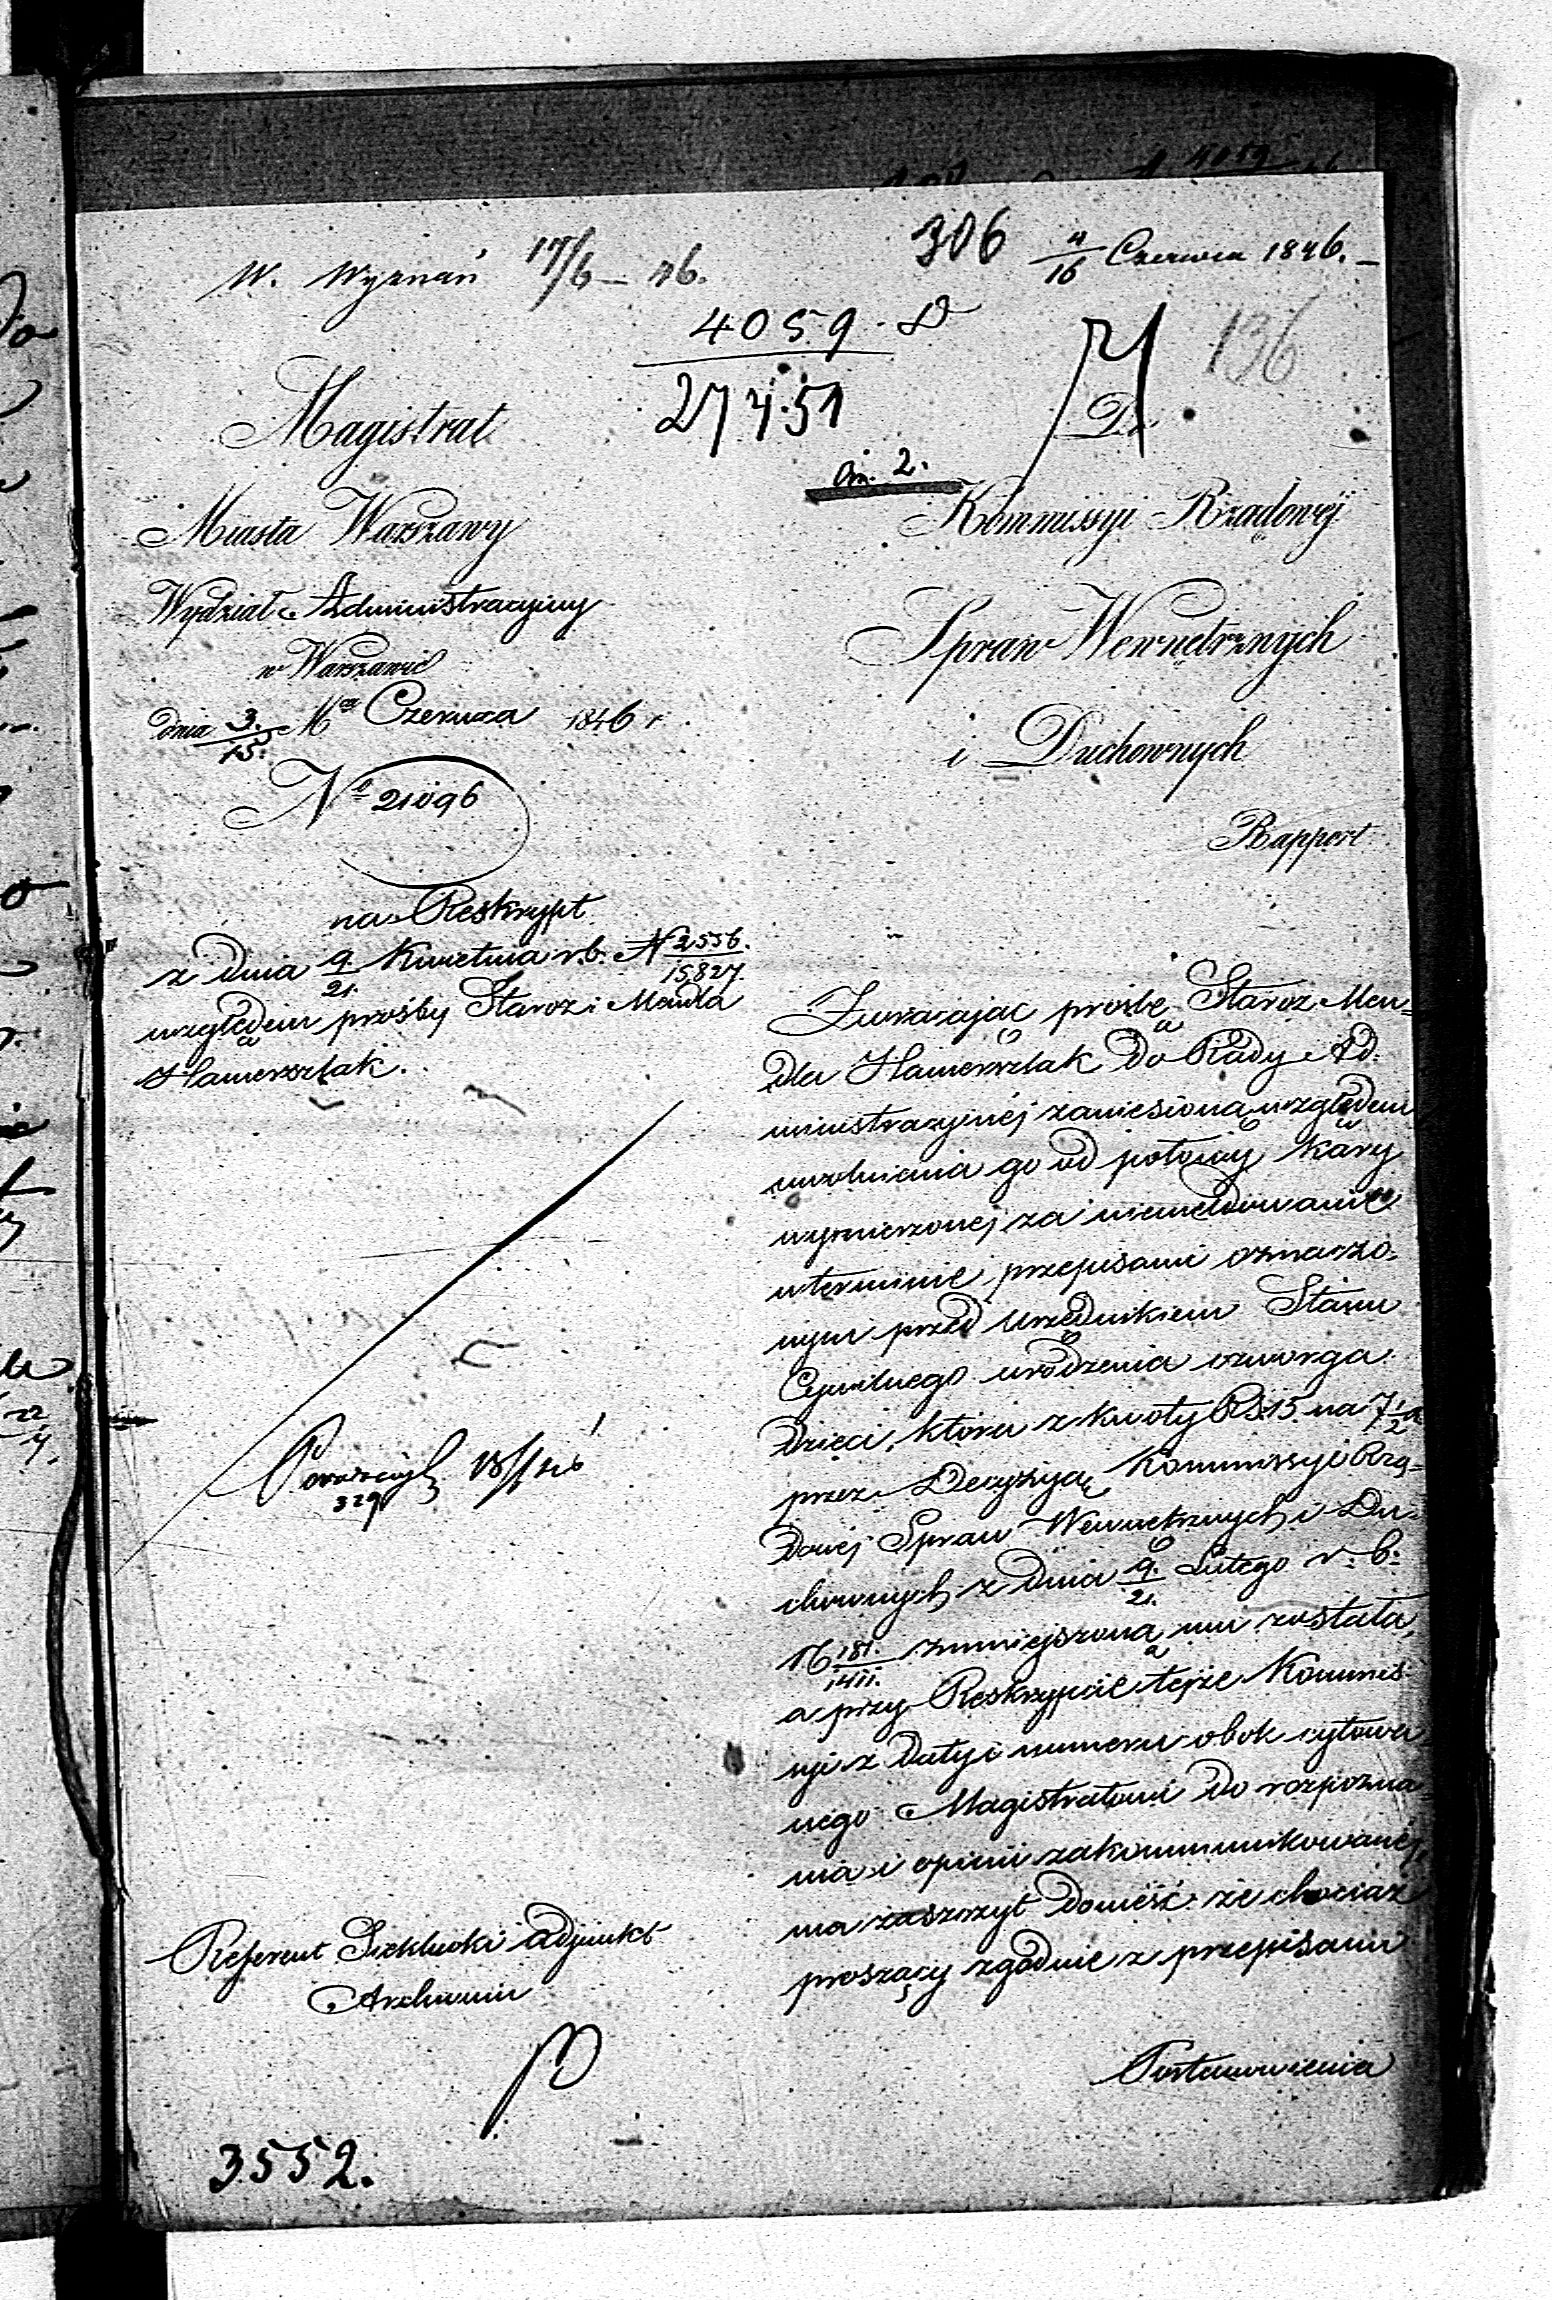 W. Wyznań 17/6 – 46.
306 4/16 Czerwca 1846. –
4059 D
27451
136
an. 2.
Magistrat
Miasta Warszawy
Wydział Administracyiny
w Warszawie
dnia 3/15 Mca Czerwca 1846 r
No 21096
na Reskrypt
z dnia 9/21 Kwietnia r.b. N 2556/15827
względem proźby Staroz: Mendla
Hamersztak.
18/6
329
Referent Adjunkt
Archiwum
3552.
Do
Kommissyi Rządowéj
Spraw Wewnętrznych
i Duchownych
Rapport
Zwracając prośbę Staroz. Men-
dla Hamersztak do Rady Ad-
ministracyinéj zaniesioną względem
uwolnienia go od połowy kary
wymierzonej za niemeldowanie
w terminie przepisami oznaczo-
nym przed Urzędnikiem Stanu
Cywilnego urodzenia czworga
dzieci, która z kwoty RS 15 na 7 1/2
przez Decyzyą Kommissyi Rzą-
dowéj Spraw Wewnętrznych i Du-
chownych z dnia 9/21 Lutego r. b.
N 181/1411 zmniejszoną mu została,
a przy Reskrypcie tejże Kommis-
syi z daty i numeru obok cytowa
nego Magistratowi do rozpozna
nia i opinii zakommunikowanéj,
ma zaszczyt donieść że chociaż
proszący zgodnie z przepisami
Postanowienia